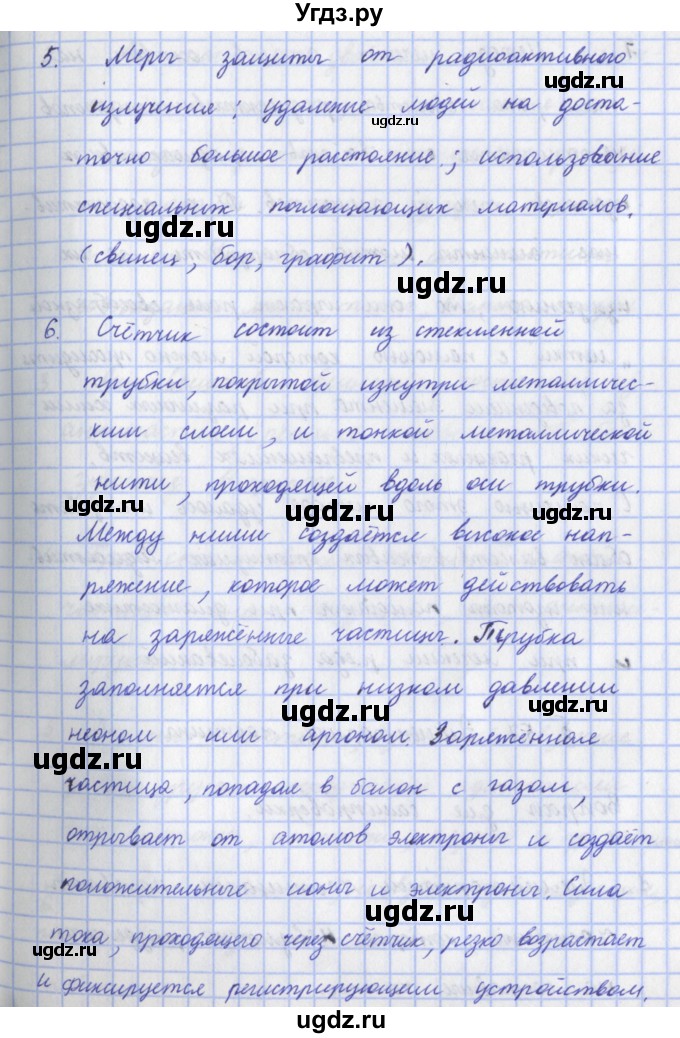 Угдз.ру
5. Меры защиты от радиоактивного
ugdz.ru
излучения: удаление людей на доста-
ugdz.ru
точно большое расстояние; использование
специальных поглощающих материалов.
ugdz.ru ugdz.ru
(свинец, бор, графит).
ugdz.ru
6. Счётчик состоит из стеклянной
трубки, покрытой изнутри металличес-
ugdz.ru
ким слоем, и тонкой металлической
ugdz.ru
нити, проходящей вдоль оси трубки.
ugdz.ru ugdz.ru
Между ними создаётся высокое нап-
ряжение, которое может действовать
ugdz.ru
на заряжённые частицы. Трубка
заполняется при низком давлении
ugdz.ru
неоном или аргоном. Заряжённая
ugdz.ru
частица, попадая в балон с газом,
ugdz.ru
отрывает от атомов электроны и создаёт
положительные ионы и электроны. Сила
ugdz.ru
тока, проходящего через счётчик, резко возрастает
ugdz.ru
и фиксируется регистрирующим устройством.
ugdz.ru
ugdz.ru